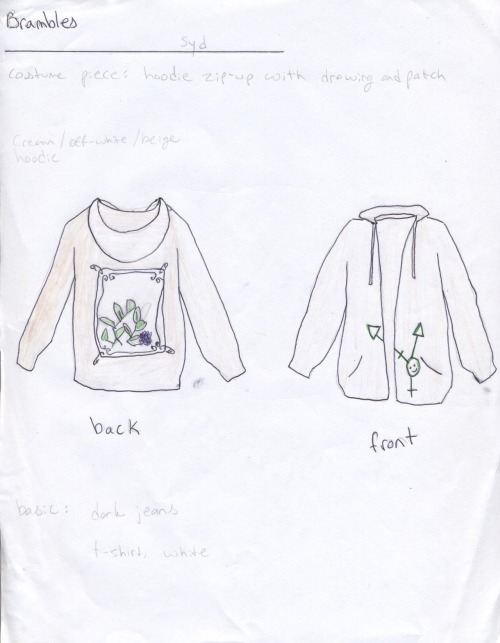 Brambles
Syd
costume piece: hoodie zip-up with drawing and patch
Cream/off-white/beige
hoodie
back
front
basic: dark jeans
t-shirt, white